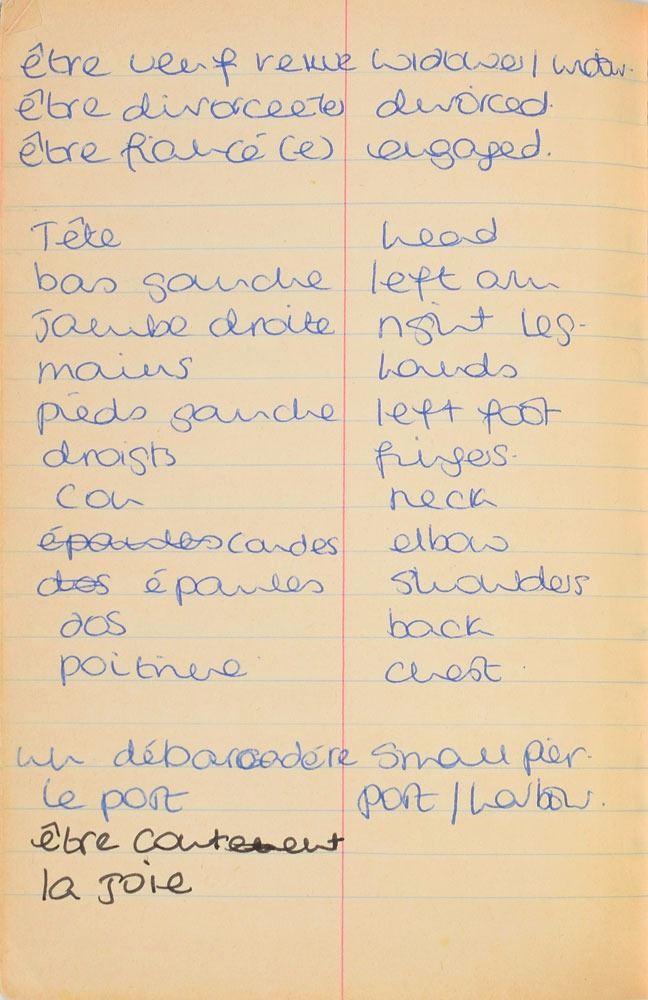 être veuf veuve widower / widow.
être divorcée(e) divorced.
être fiancé (e) engaged.
Tête head
bas gauche left arm
Jambe droite right leg.
mains hands
pieds gauche left foot
droigts fingers.
Cou neck
épaules coudes elbow
dos épaules shoulders
dos back
poitrine chest.
un débarcadére small pier.
le port port / harbour.
être content
la joie